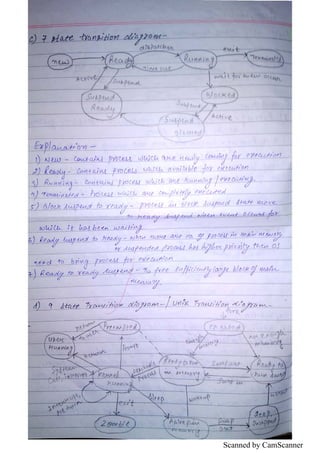 c) 7 state transition diagram-
dispatcher
exit
new
Ready
Running
Terminated
time out
wait for an event occur
Active
Suspend
Blocked
Suspend
Ready
Suspend
Active
Suspend
Blocked
Explanation -
1) New - contains process which are newly coming for execution
2) Ready - contains process which available for execution
3) Running - contains process which are Running / executing.
4) Terminated - Process which are completely executed
5) Block suspend to ready - process in block suspend state move
to ready suspend when event occurs for
which it has been waiting
6) Ready suspend to Ready - when there are no process in main memory
or suspended process has higher priority then OS
need to bring process for execution
7) Ready to ready suspend - To free sufficiently large block of main
memory.
d) 9 state Transition diagram- / Unix Transition diagram-
fork
return
Preempted
created
User
Running
return
Ready to
swap
System
call
Kernel
Running
in memory
swap in
exit
sleep
wakeup
Zombie
Asleep in
memory
swap
out
Sleep,
swapped
Scanned by CamScanner